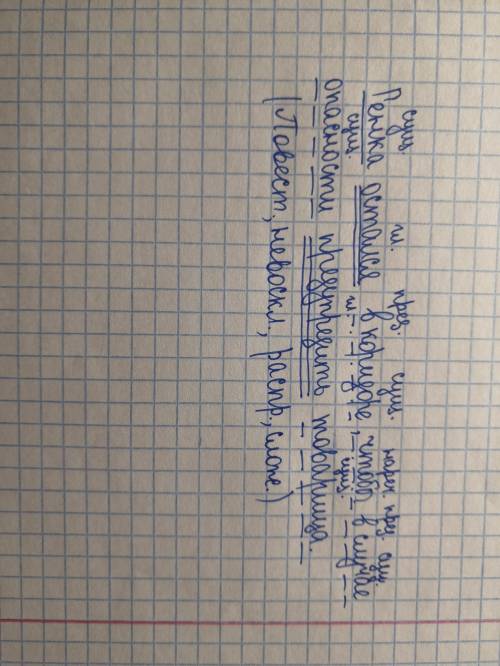 сущ. гл. предл. сущ. нареч. пред. сущ.
Пемка остался в коридоре, чтобы в случае
сущ. гл. сущ.
опасности предупредить товарища.
(Повест., невоскл., распр., слож.)